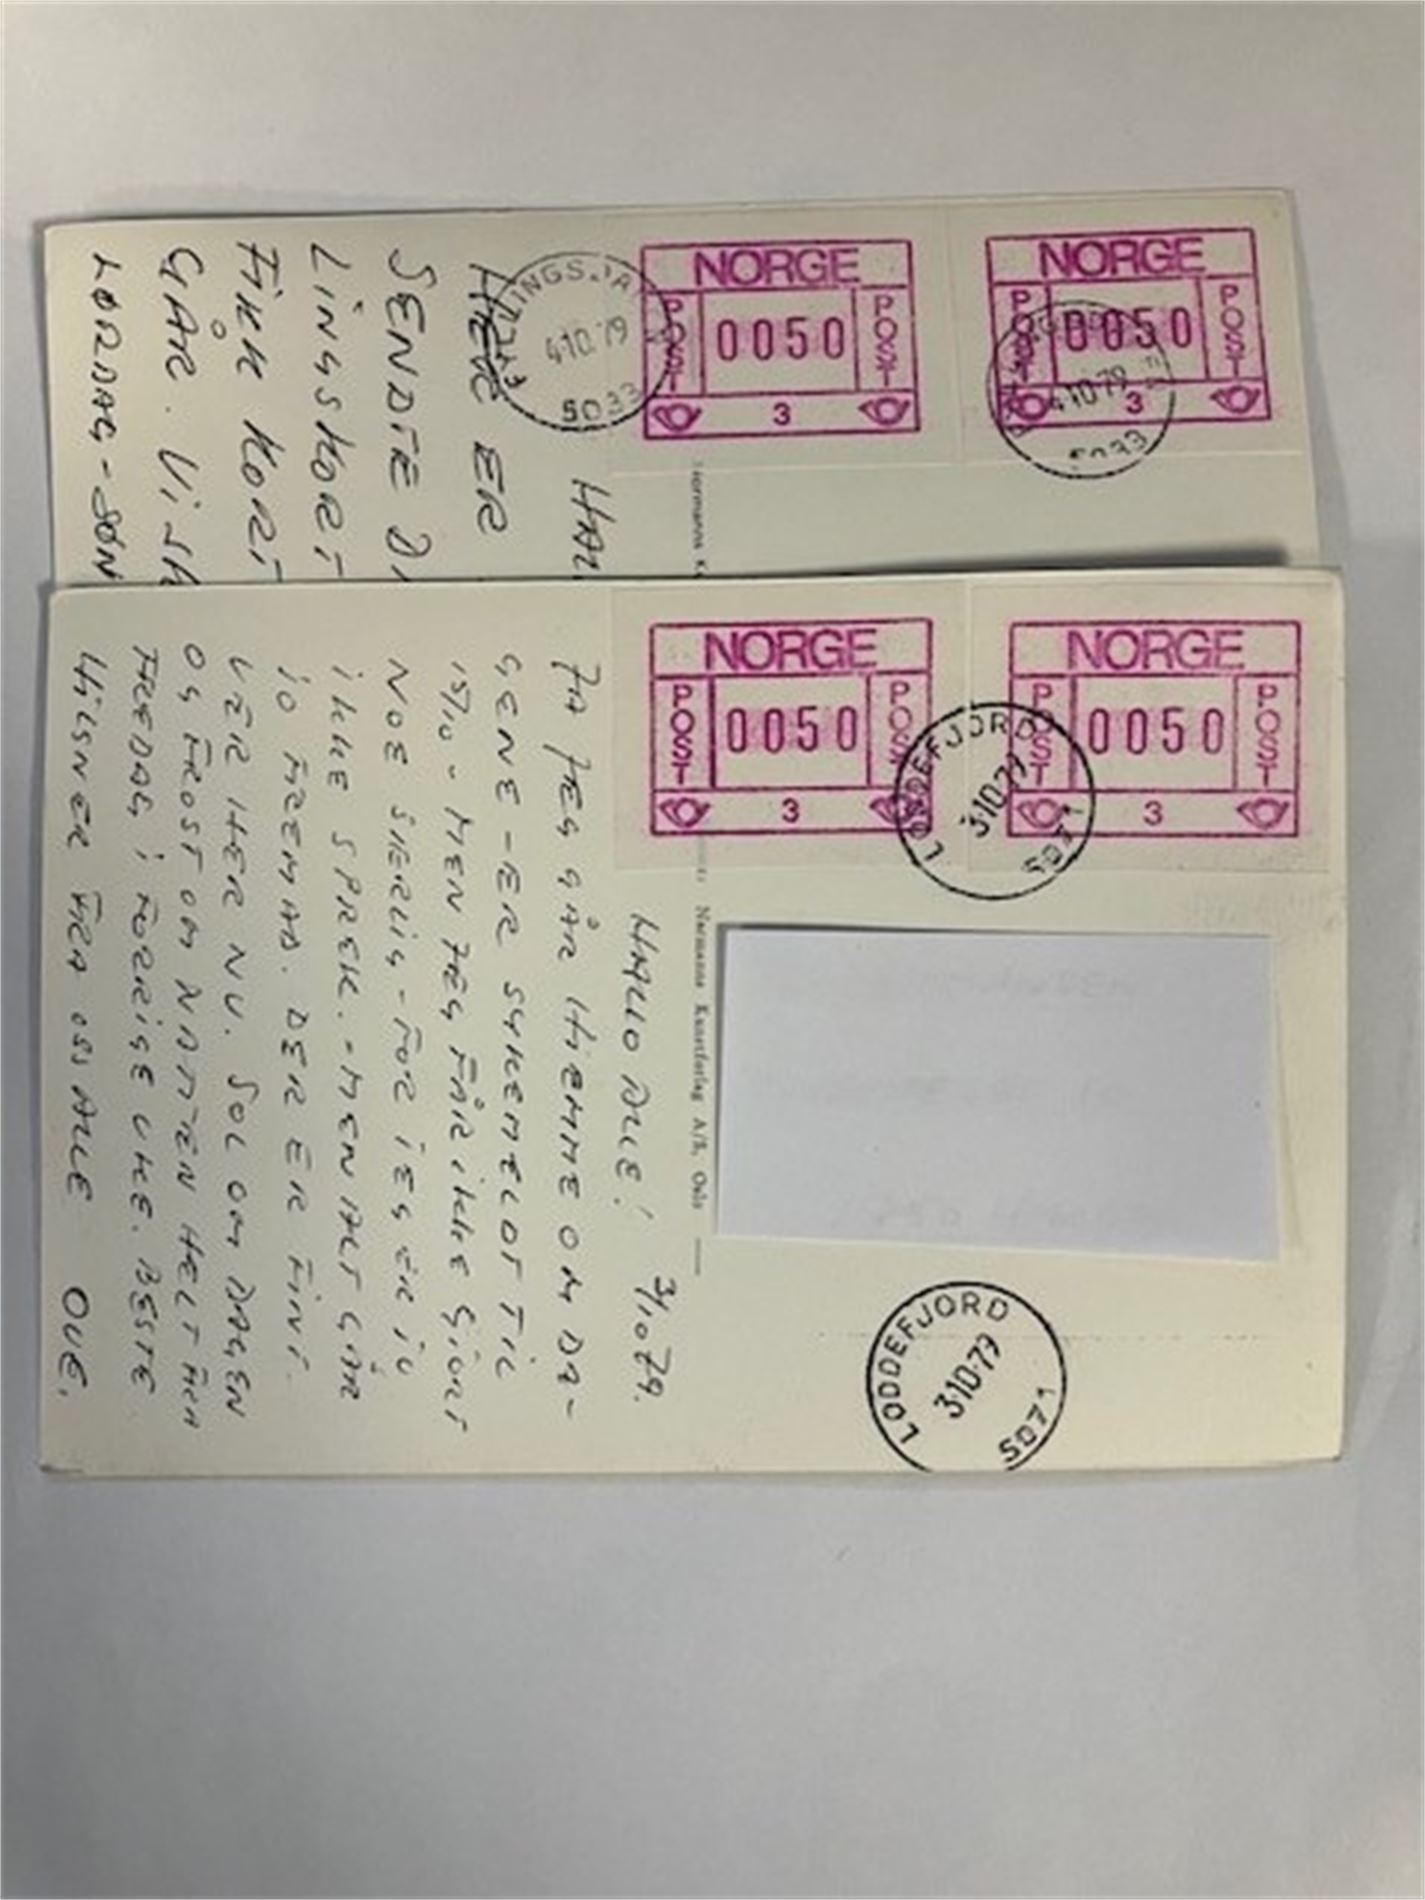 NORGE
POST 0050 POST
3
NORGE
POST 0050 POST
3
INGSJA
4.10.79
5033
4.10.79
5033
HAL
HER ER
SENDTE D
LINGSKORT
FIKK KORT
GÅR. VI SK
LØRDAG - SØN
Normanns K
NORGE
POST 0050 POST
3
NORGE
POST 0050 POST
3
LODDEFJORD
3.10.79
5071
Normanns Kunstforlag A/S, Oslo
3/10 79.
HALLO ALLE!
JA JEG GÅR HJEMME OM DA-
GENE - ER SYKEMELDT TIL
15/10 - MEN JEG FÅR IKKE GJORT
NOE SÆRLIG - FOR JEG ER JO
IKKE SPREK. - MEN ALT GÅR
JO FREMAD. DER ER FINT
VÆR HER NU. SOL OM DAGEN
OG FROST OM NATTEN HELT FRA
FREDAG I FORRIGE UKE. BESTE
HILSNER FRA OSS ALLE OVE.
LODDEFJORD
3.10.79
5071